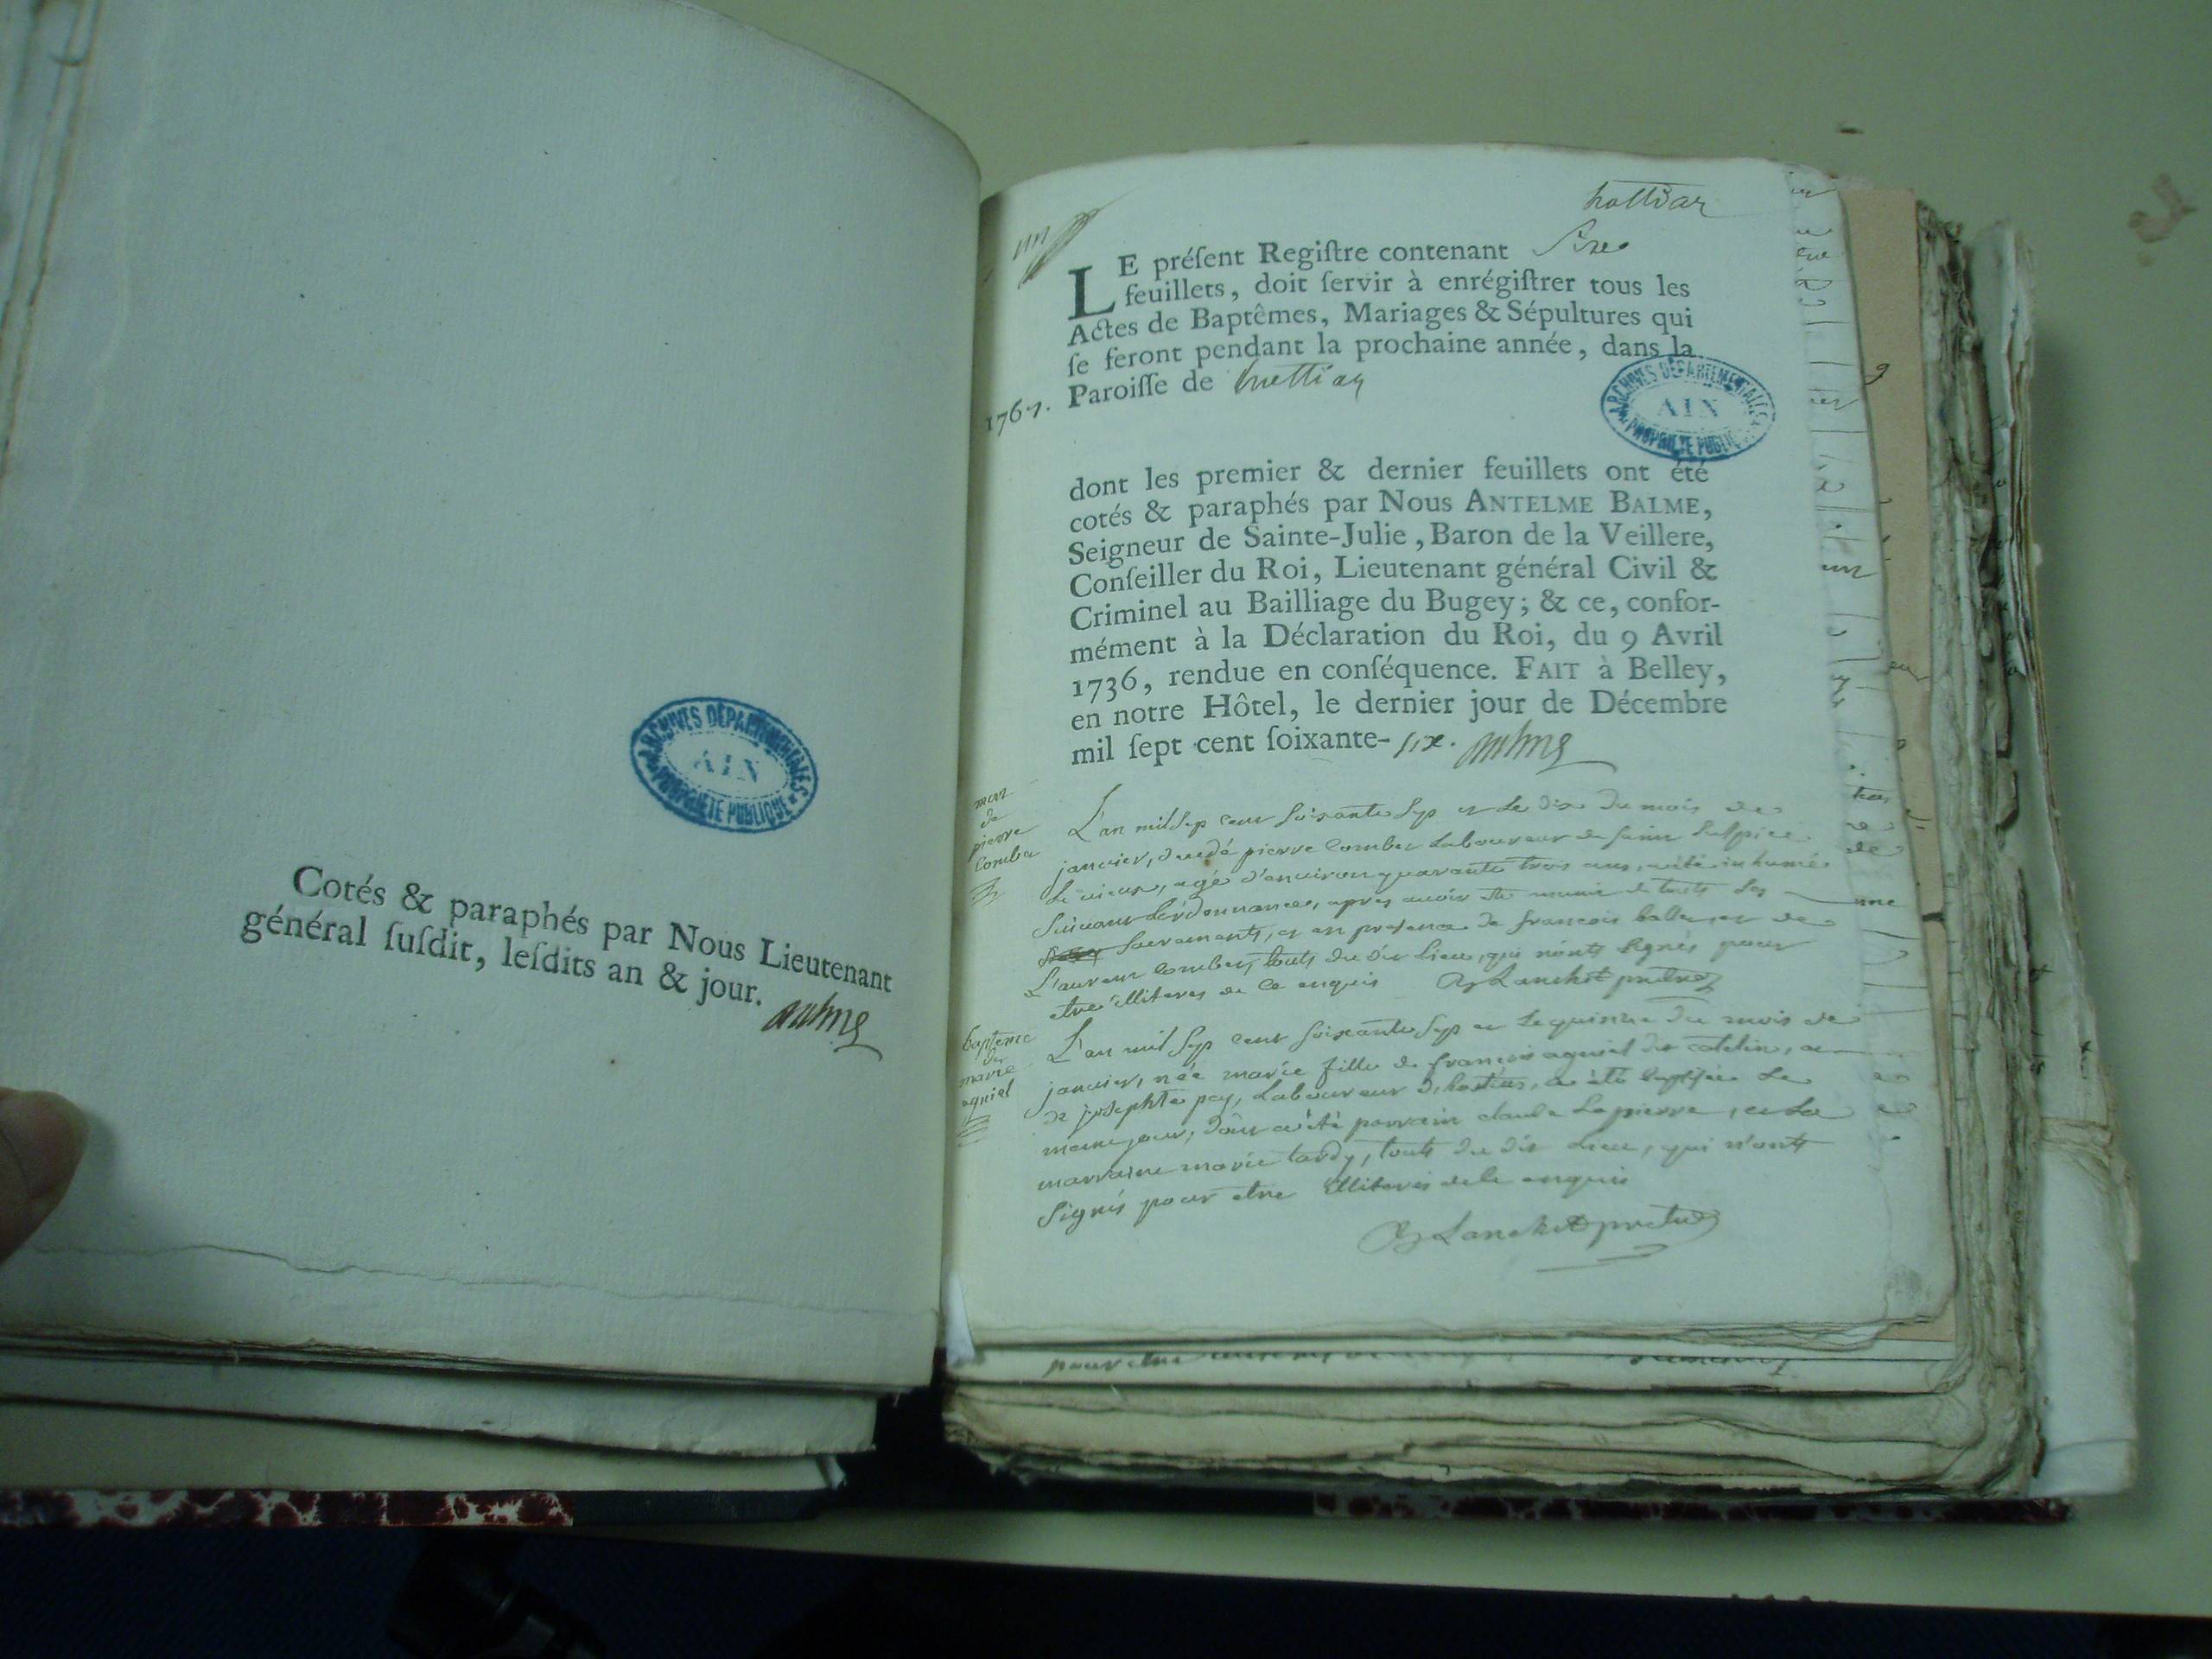 ARCHIVES DÉPARTEMENTALES
AIN
PROPRIÉTÉ PUBLIQUE
Cotés & paraphés par Nous Lieutenant
général ſuſdit, leſdits an & jour.
LE préſent Regiſtre contenant
feuillets, doit ſervir à enrégiſtrer tous les
Actes de Baptêmes, Mariages & Sépultures qui
ſe feront pendant la prochaine année, dans la
Paroiſſe de
1767.
ARCHIVES DÉPARTEMENTALES
AIN
PROPRIÉTÉ PUBLIQUE
dont les premier & dernier feuillets ont été
cotés & paraphés par Nous ANTELME BALME,
Seigneur de Sainte-Julie, Baron de la Veillere,
Conſeiller du Roi, Lieutenant général Civil &
Criminel au Bailliage du Bugey; & ce, confor-
mément à la Déclaration du Roi, du 9 Avril
1736, rendue en conſéquence. FAIT à Belley,
en notre Hôtel, le dernier jour de Décembre
mil ſept cent ſoixante-six.
mort
de
pierre
Combe
L'an mil sep cent soixante sep et le dix du mois de
janvier, pierre Combet laboureur de saint Sulpice
le vieux, agé d'environ quarante trois ans, a été inhumé
suivant les ordonnances, apres avoir été muni de touts les
sacrements, et en presence de francois et de
Laurent Combet, touts du dit lieu, qui n'onts signés pour
etre illiteres de ce enquis Lanchet
bapteme
de
marie
agniel
L'an mil sep cent soixante sep et le quinze du mois de
janvier, née marie fille de françois agniel dit catelin, et
de josephte pey, laboureur d' a été baptisée le
meme jour, dont a été parrain claude Lapierre, et la
marraine marie tardy, touts du dit lieu, qui n'onts
signés pour etre illiteres de ce enquis
Lanchet